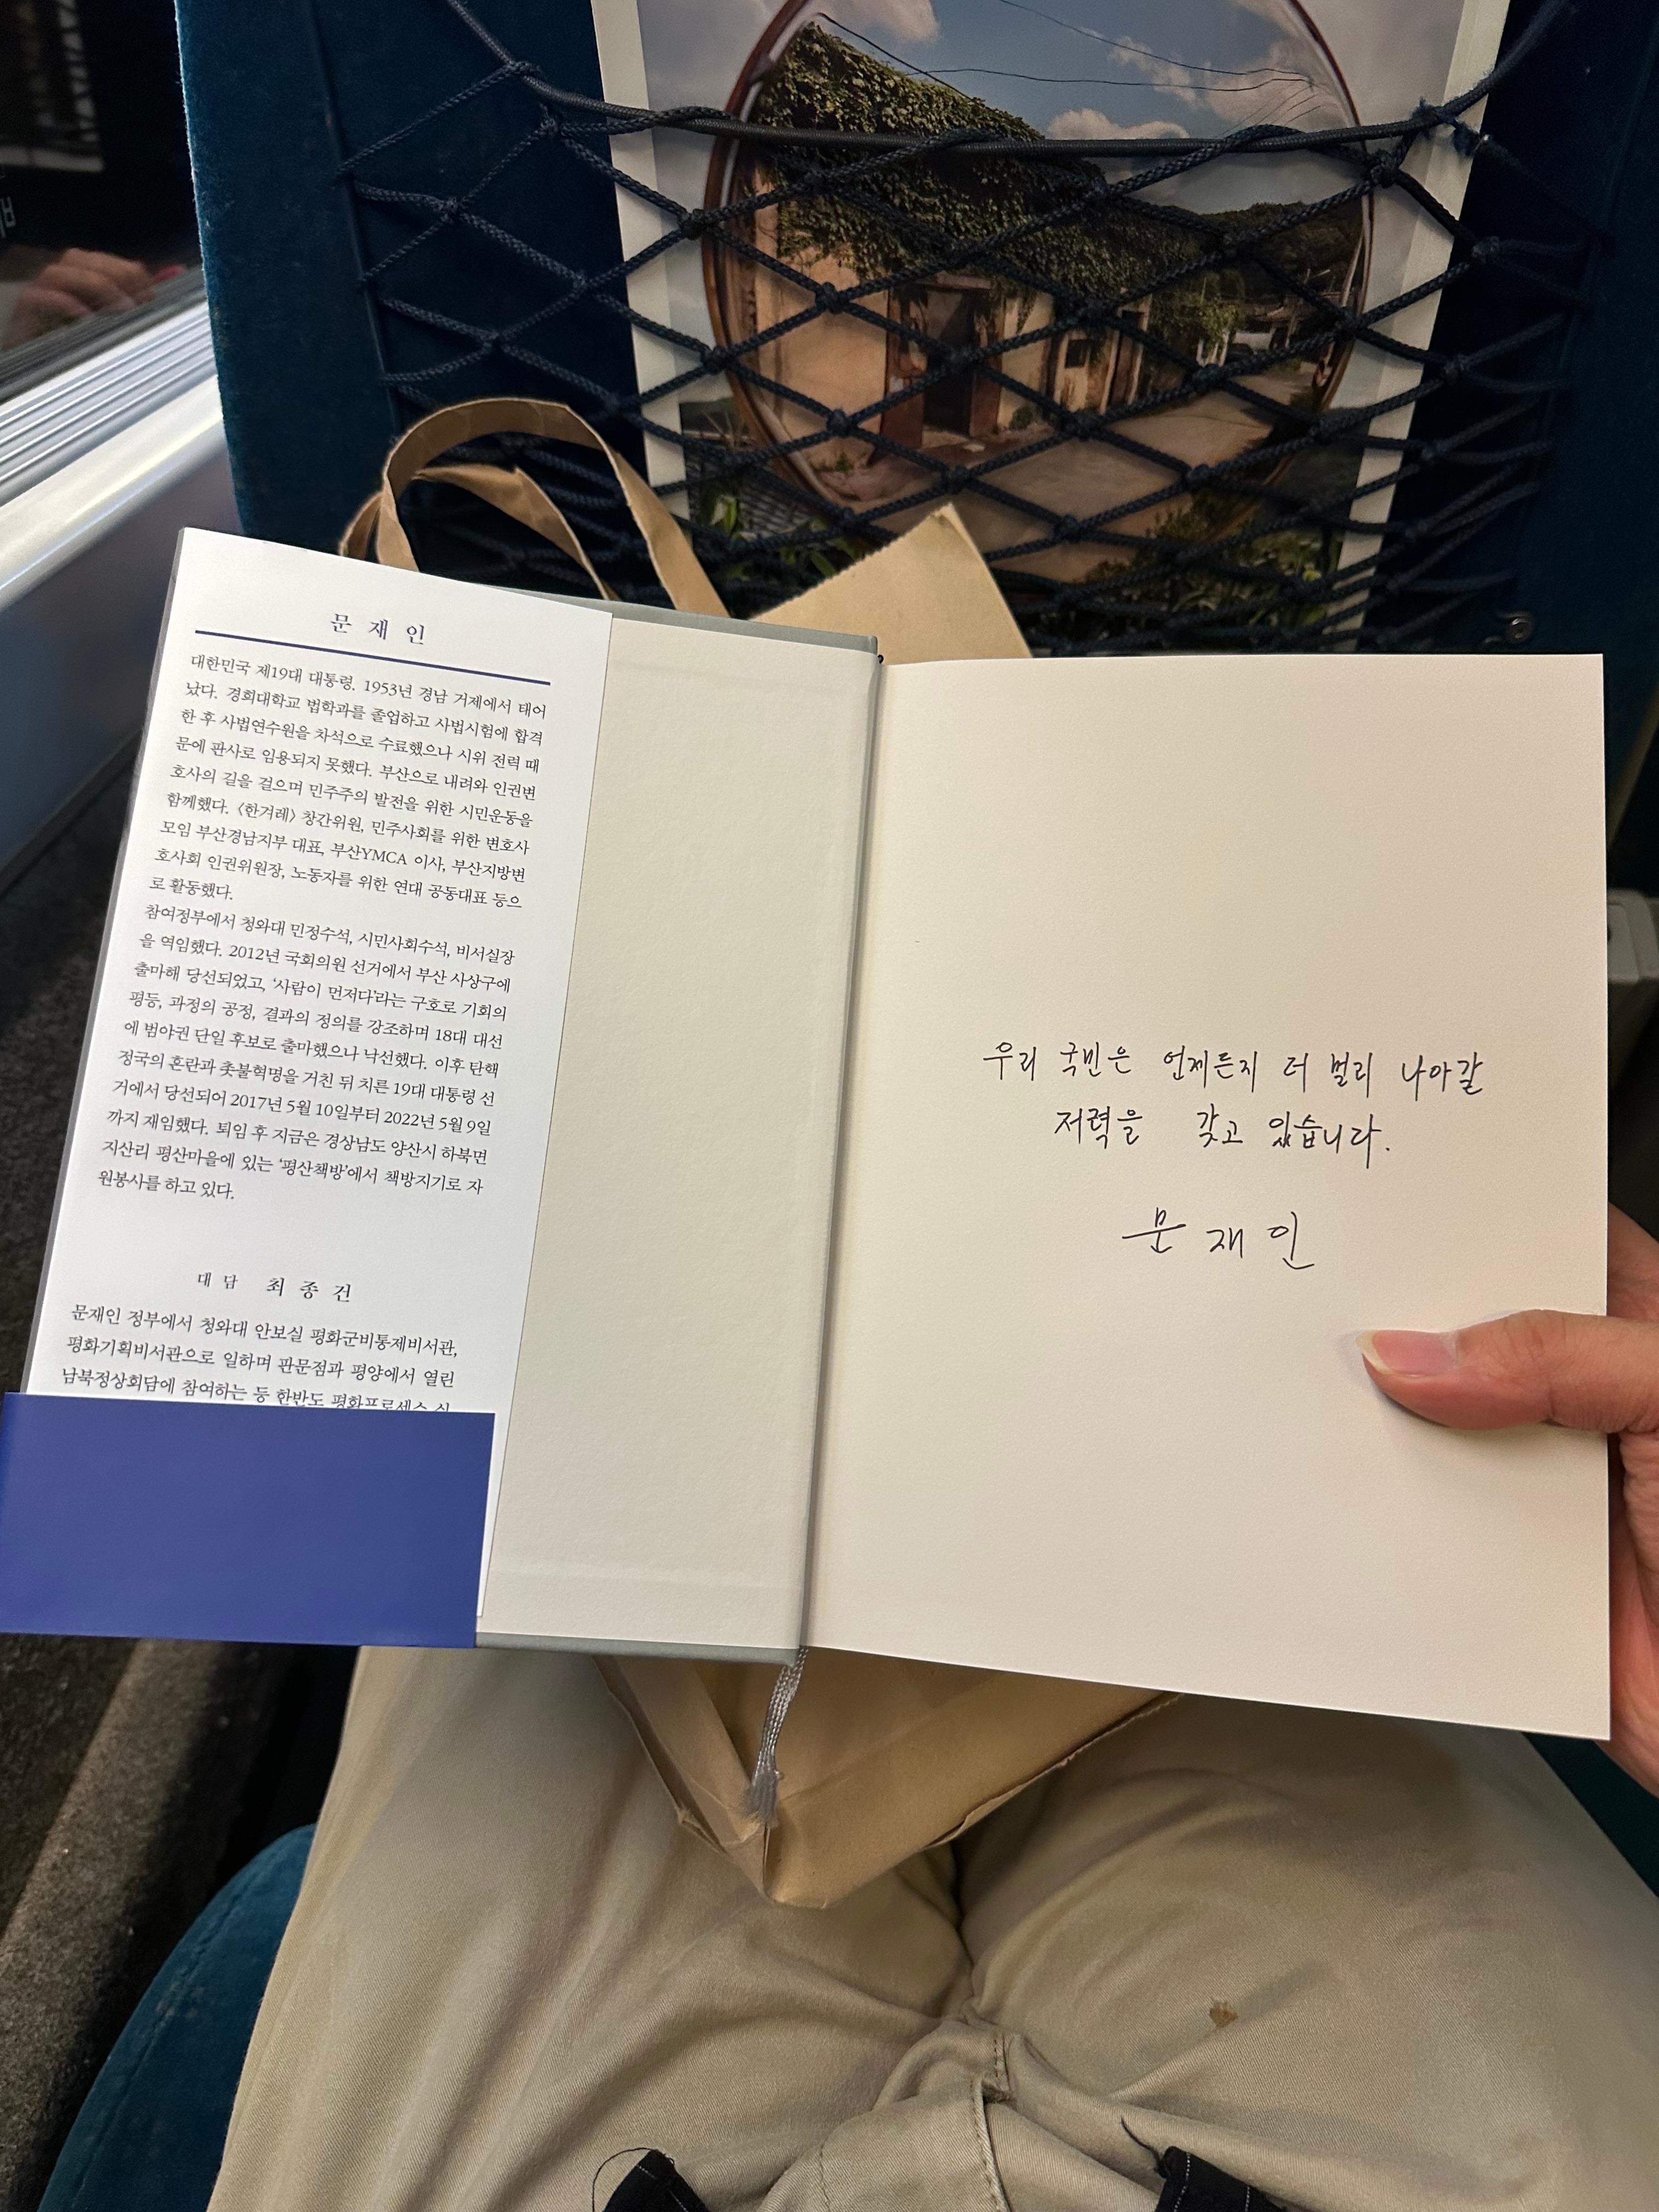 문 재 인
대한민국 제19대 대통령. 1953년 경남 거제에서 태어
났다. 경희대학교 법학과를 졸업하고 사법시험에 합격
한 후 사법연수원을 차석으로 수료했으나 시위 전력 때
문에 판사로 임용되지 못했다. 부산으로 내려와 인권변
호사의 길을 걸으며 민주주의 발전을 위한 시민운동을
함께했다. 〈한겨레〉 창간위원, 민주사회를 위한 변호사
모임 부산경남지부 대표, 부산YMCA 이사, 부산지방변
호사회 인권위원장, 노동자를 위한 연대 공동대표 등으
로 활동했다.
참여정부에서 청와대 민정수석, 시민사회수석, 비서실장
을 역임했다. 2012년 국회의원 선거에서 부산 사상구에
출마해 당선되었고, ‘사람이 먼저다’라는 구호로 기회의
평등, 과정의 공정, 결과의 정의를 강조하며 18대 대선
에 범야권 단일 후보로 출마했으나 낙선했다. 이후 탄핵
정국의 혼란과 촛불혁명을 거친 뒤 치른 19대 대통령 선
거에서 당선되어 2017년 5월 10일부터 2022년 5월 9일
까지 재임했다. 퇴임 후 지금은 경상남도 양산시 하북면
지산리 평산마을에 있는 ‘평산책방’에서 책방지기로 자
원봉사를 하고 있다.
대 담 최 종 건
문재인 정부에서 청와대 안보실 평화군비통제비서관,
평화기획비서관으로 일하며 판문점과 평양에서 열린
남북정상회담에 참여하는 등 한반도 평화프로세스
우리 국민은 언제든지 더 멀리 나아갈
저력을 갖고 있습니다.
문 재 인